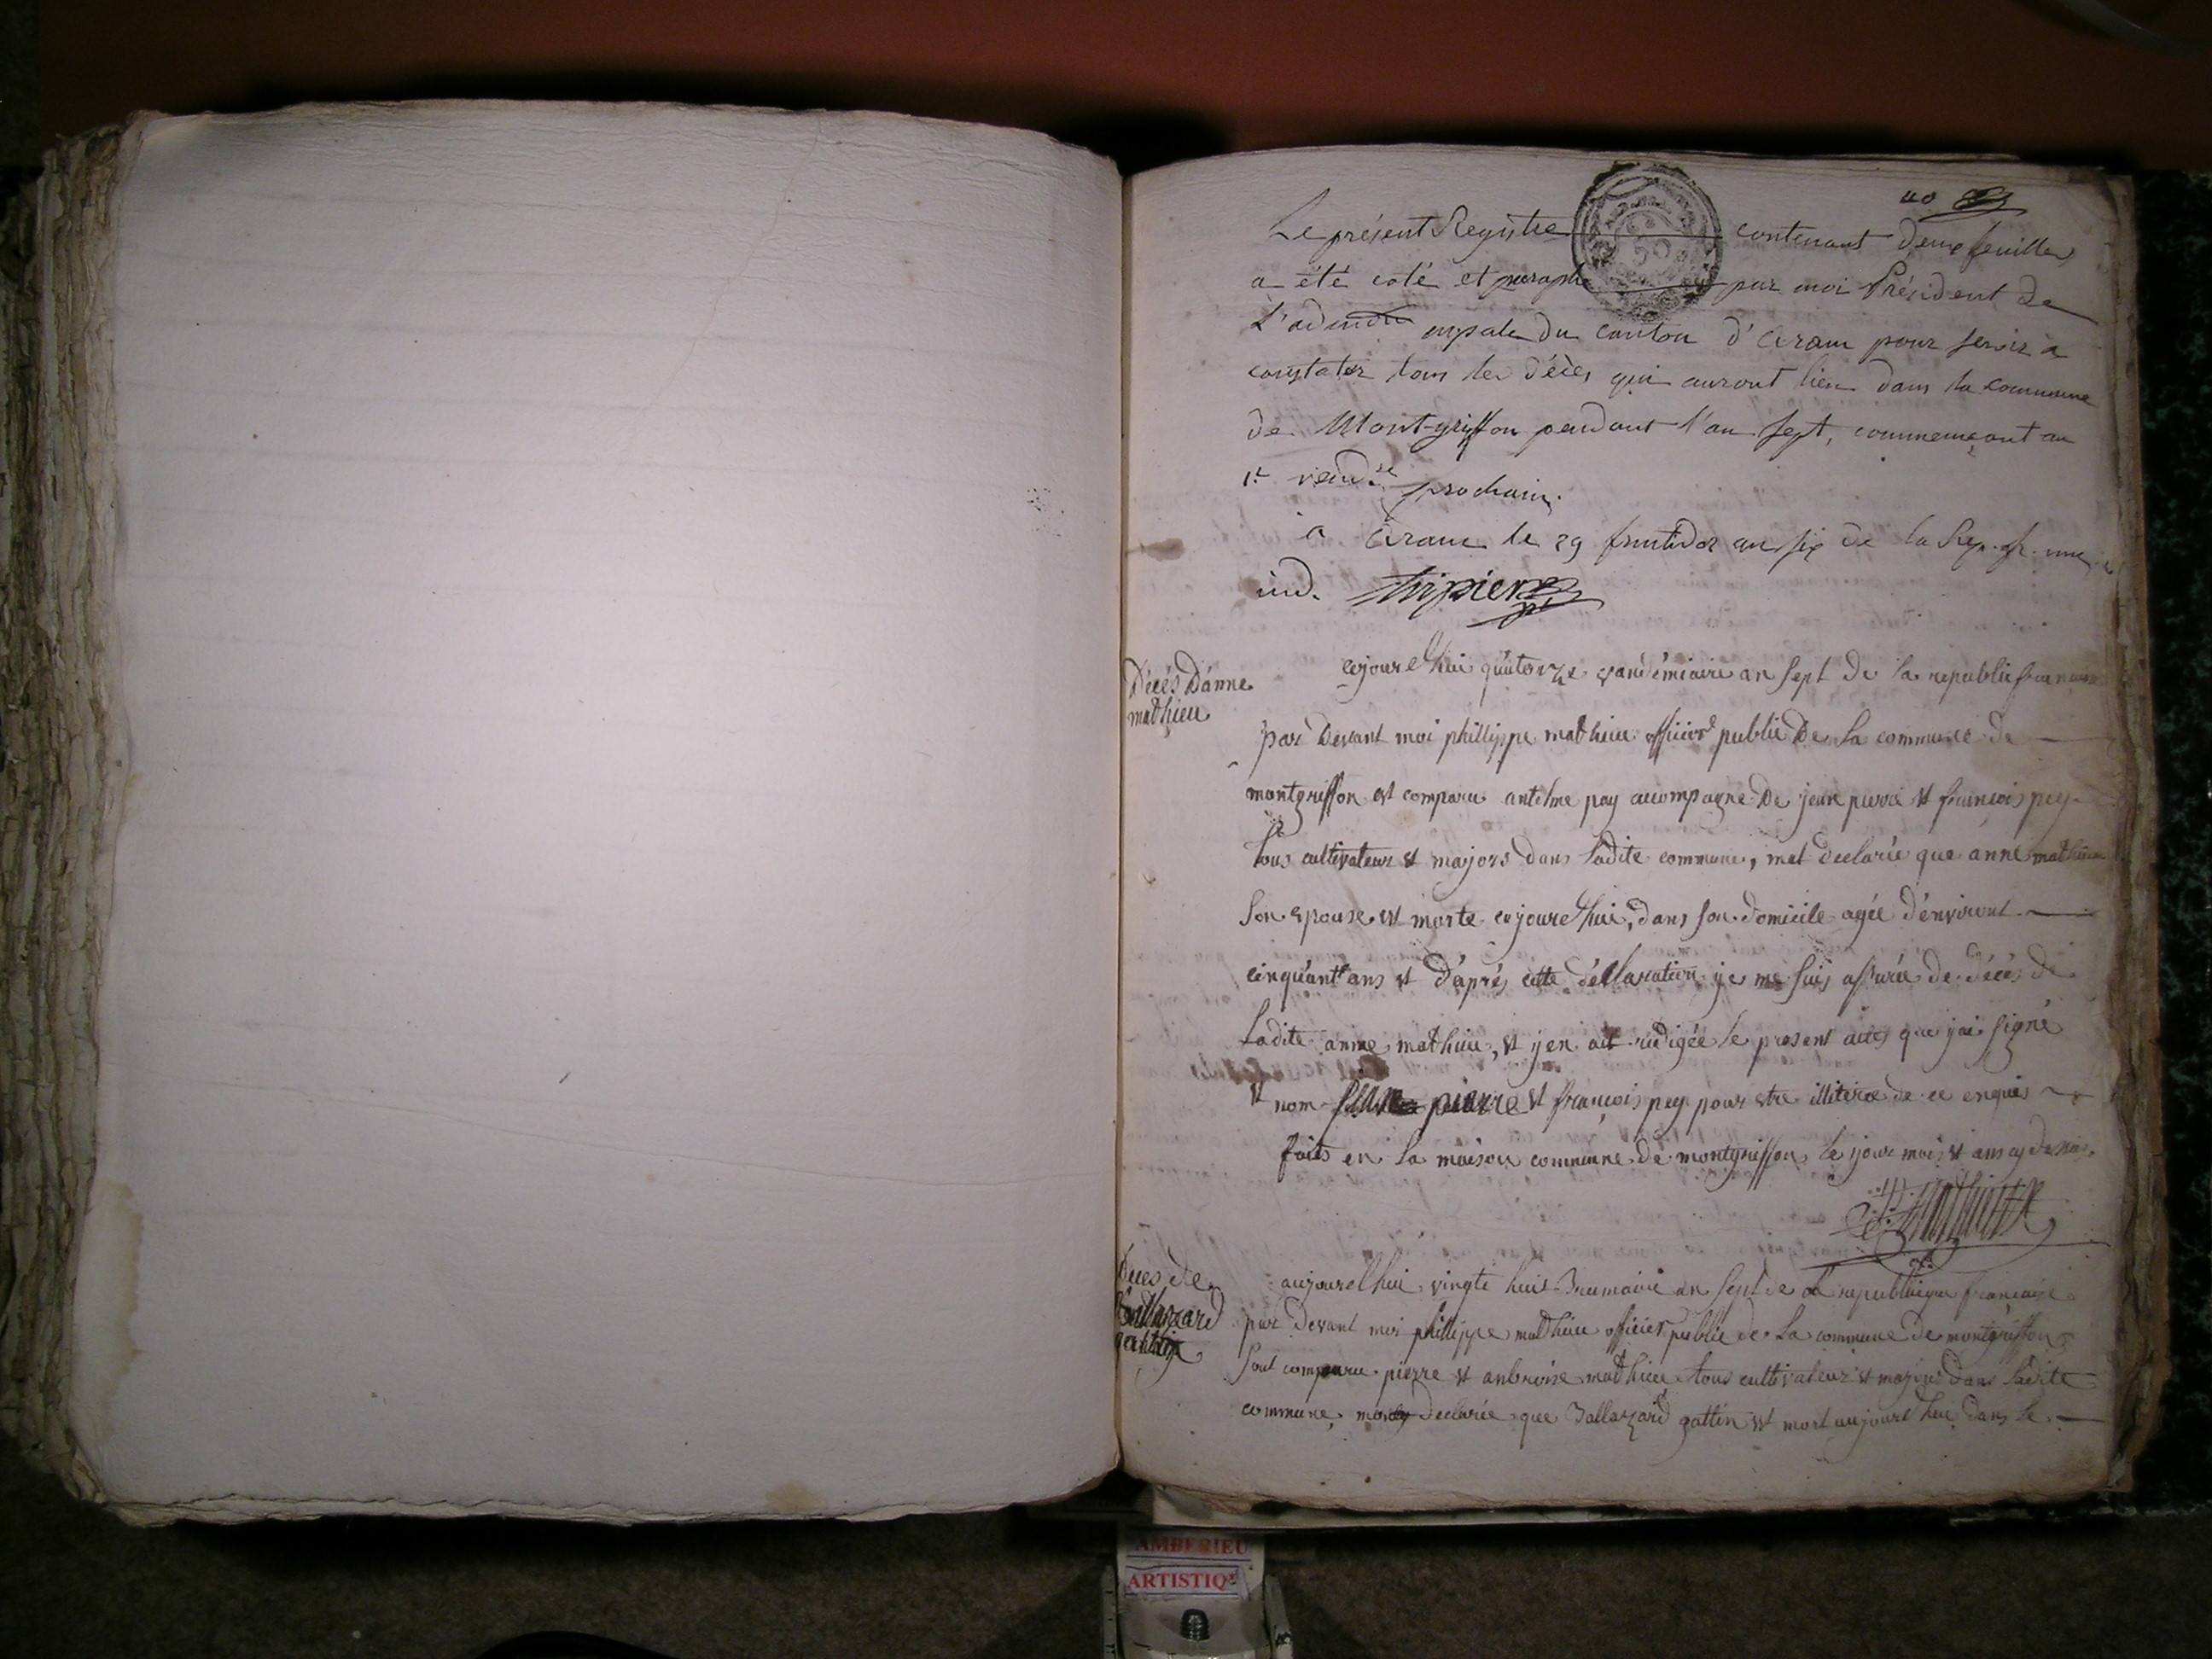 Le présent Registre contenant deux feuilles
a été coté et paraphé par moi Président de
L'ad mpale du canton d'Aranc pour servir a
constater tous les décès qui auront lieu dans la commune
de Montgriffon pendant l'an sept, commençant au
1er vendre prochain.
a Aranc le 29 fructidor an six de la Rep. fr. une
ind. Tripier
50
Décès D'anne
mathieu
cejourdhui quatorze vandémiaire an sept de la republi francaise
par Devant moi phillippe mathieu officier public De la commune de
montgriffon est comparu antelme pey accompagne De jean pierre et francois pey
tous cultivateur et majors dans ladite commune, mat declarée que anne mathieu
son epouse est morte cejourdhui, dans son domicile agée d'environt
cinquante ans et d'aprés cette déclaration je me suis assurée de décés de
Ladite anne mathieu, et jen ait rédigée le present actes que jai signé
et nom pierre et françois pey pour etre illiterée de ce enquis
faits en la maison commune de montgriffon le jour mois et ans cy dessus
mathieu
Décés de
Ballazard
gattin
aujourdhui vingte huit Brumaire an sept de la republique française
par devant moi phillippe mathieu officier public de La commune de montgriffon
sont comparu pierre et anbroise mathieu tous cultivateur et majors dans ladite
commune, declarée que Ballazard gattin et mort aujourdhui dans le
AMBERIEU
ARTISTIQ